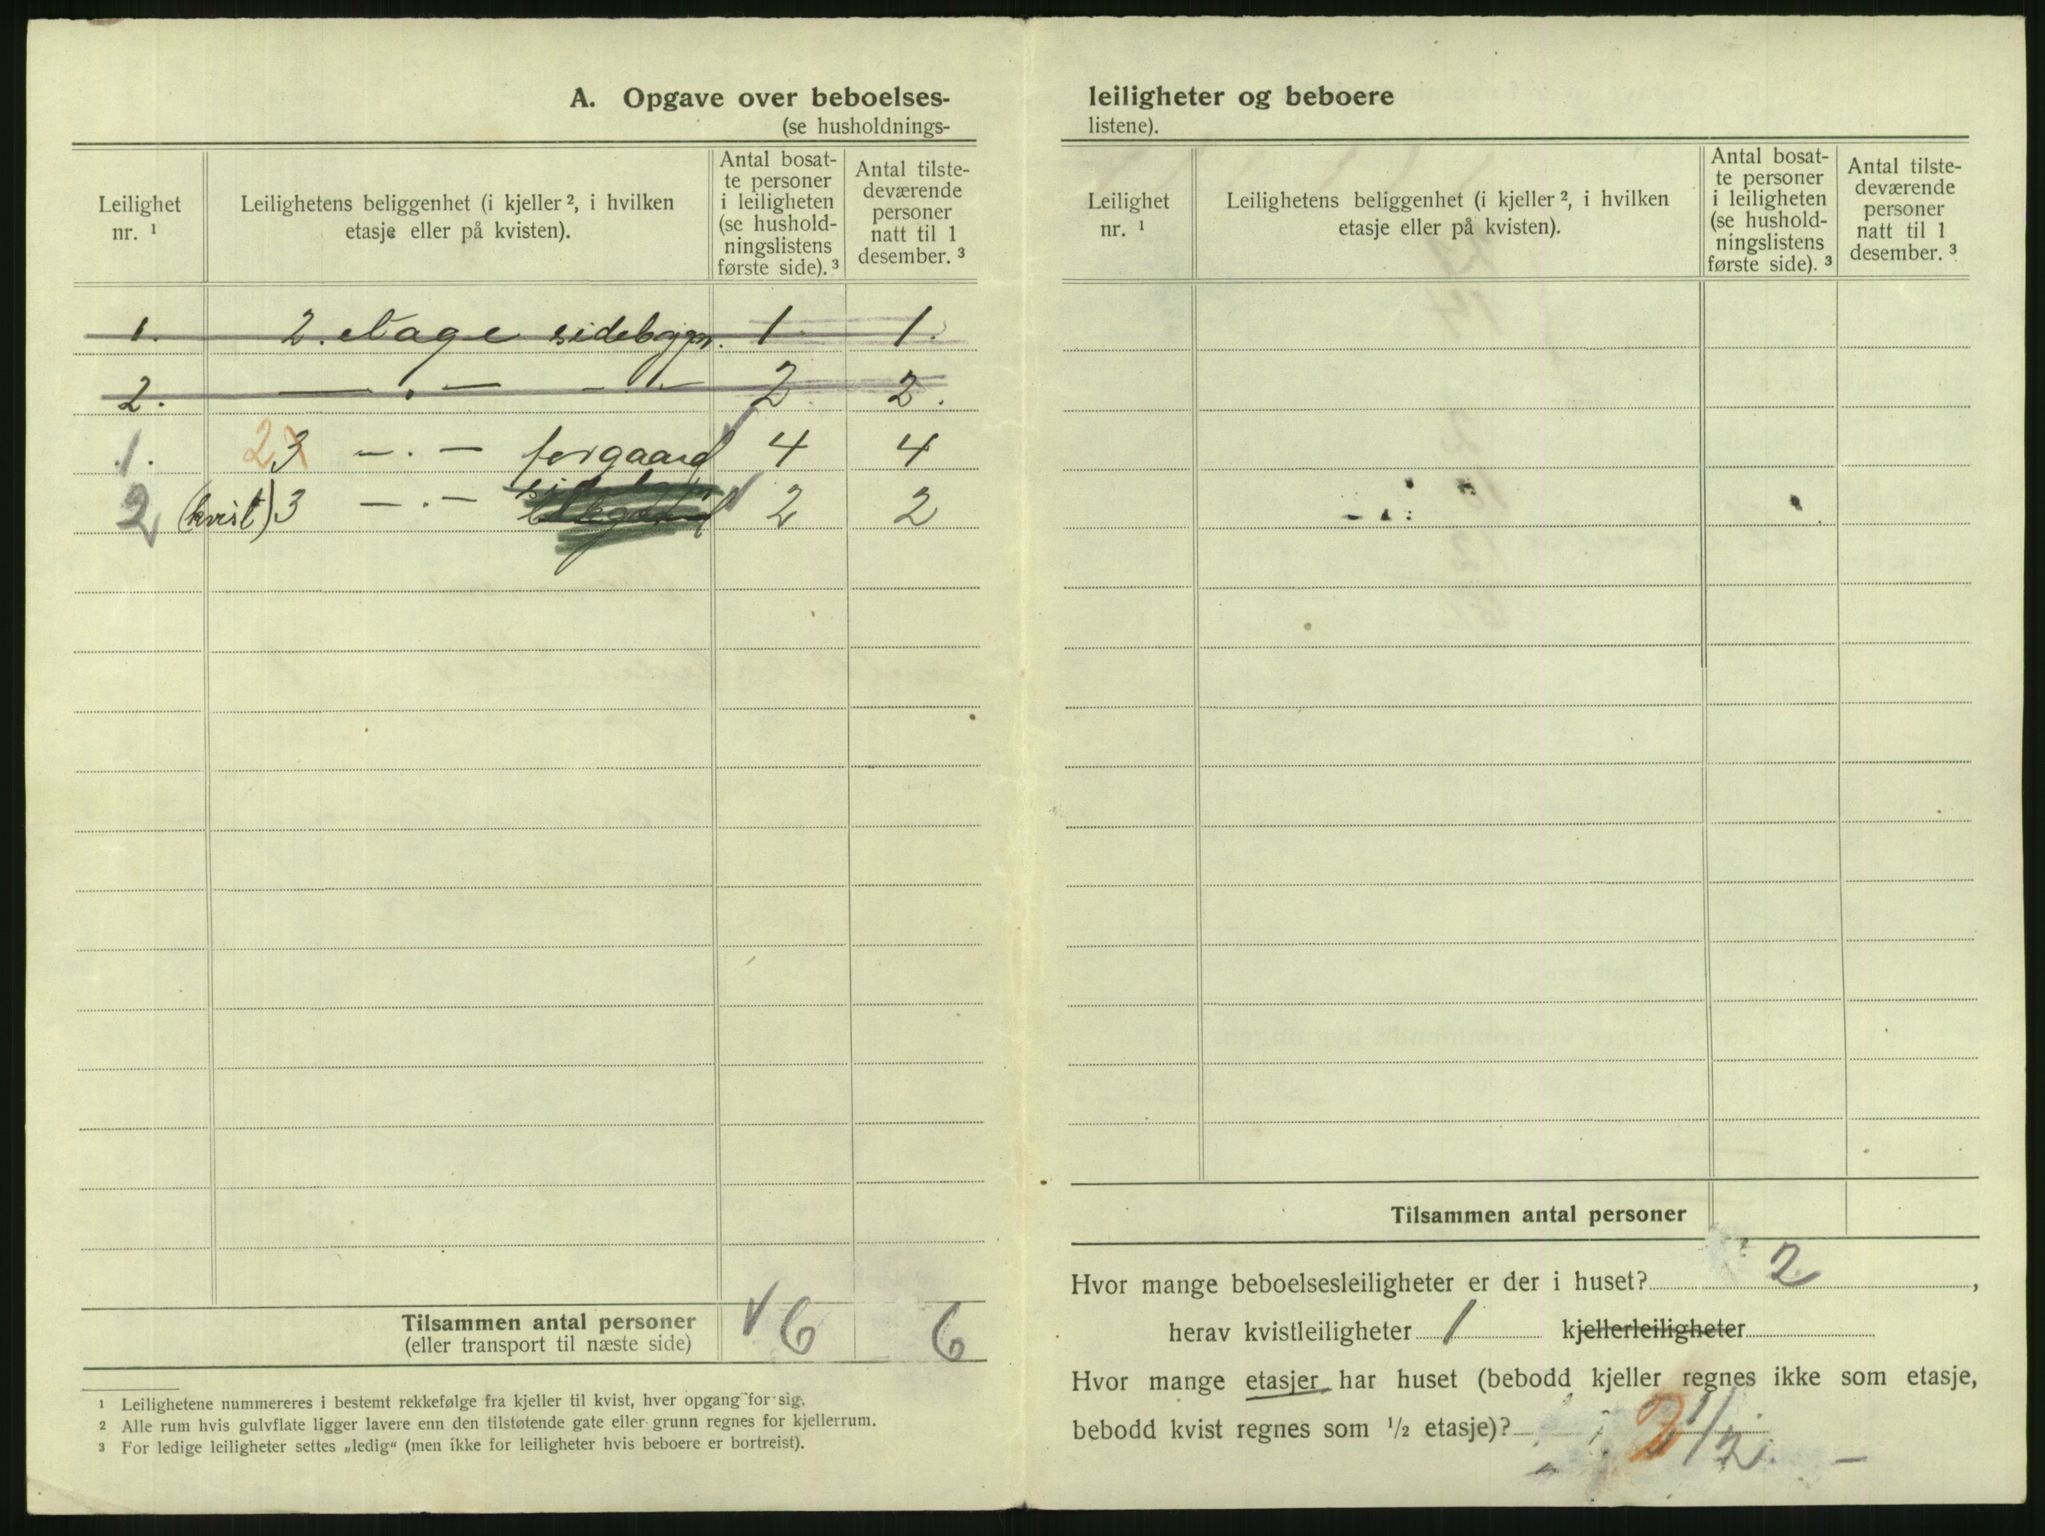 A. Opgave over beboelses-
(se husholdnings-
Leilighet nr. ¹
Leilighetens beliggenhet (i kjeller ², i hvilken etasje eller på kvisten).
Antal bosatte personer i leiligheten (se husholdningslistens første side). ³
Antal tilstedeværende personer natt til 1 desember. ³
1. 2. etage sidebygn. 1 1.
2. — . — - " — 2. 2.
1. 2 3 — . — forgaard 4 4
2 (kvist) 3 — . — 2 2
Tilsammen antal personer 6 6
(eller transport til næste side)
¹ Leilighetene nummereres i bestemt rekkefølge fra kjeller til kvist, hver opgang for sig.
² Alle rum hvis gulvflate ligger lavere enn den tilstøtende gate eller grunn regnes for kjellerrum.
³ For ledige leiligheter settes „ledig“ (men ikke for leiligheter hvis beboere er bortreist).
leiligheter og beboere
listene).
Leilighet nr. ¹
Leilighetens beliggenhet (i kjeller ², i hvilken etasje eller på kvisten).
Antal bosatte personer i leiligheten (se husholdningslistens første side). ³
Antal tilstedeværende personer natt til 1 desember. ³
Tilsammen antal personer
Hvor mange beboelsesleiligheter er der i huset? 2,
herav kvistleiligheter 1 kjellerleiligheter
Hvor mange etasjer har huset (bebodd kjeller regnes ikke som etasje,
bebodd kvist regnes som ½ etasje)? 2 1/2. —